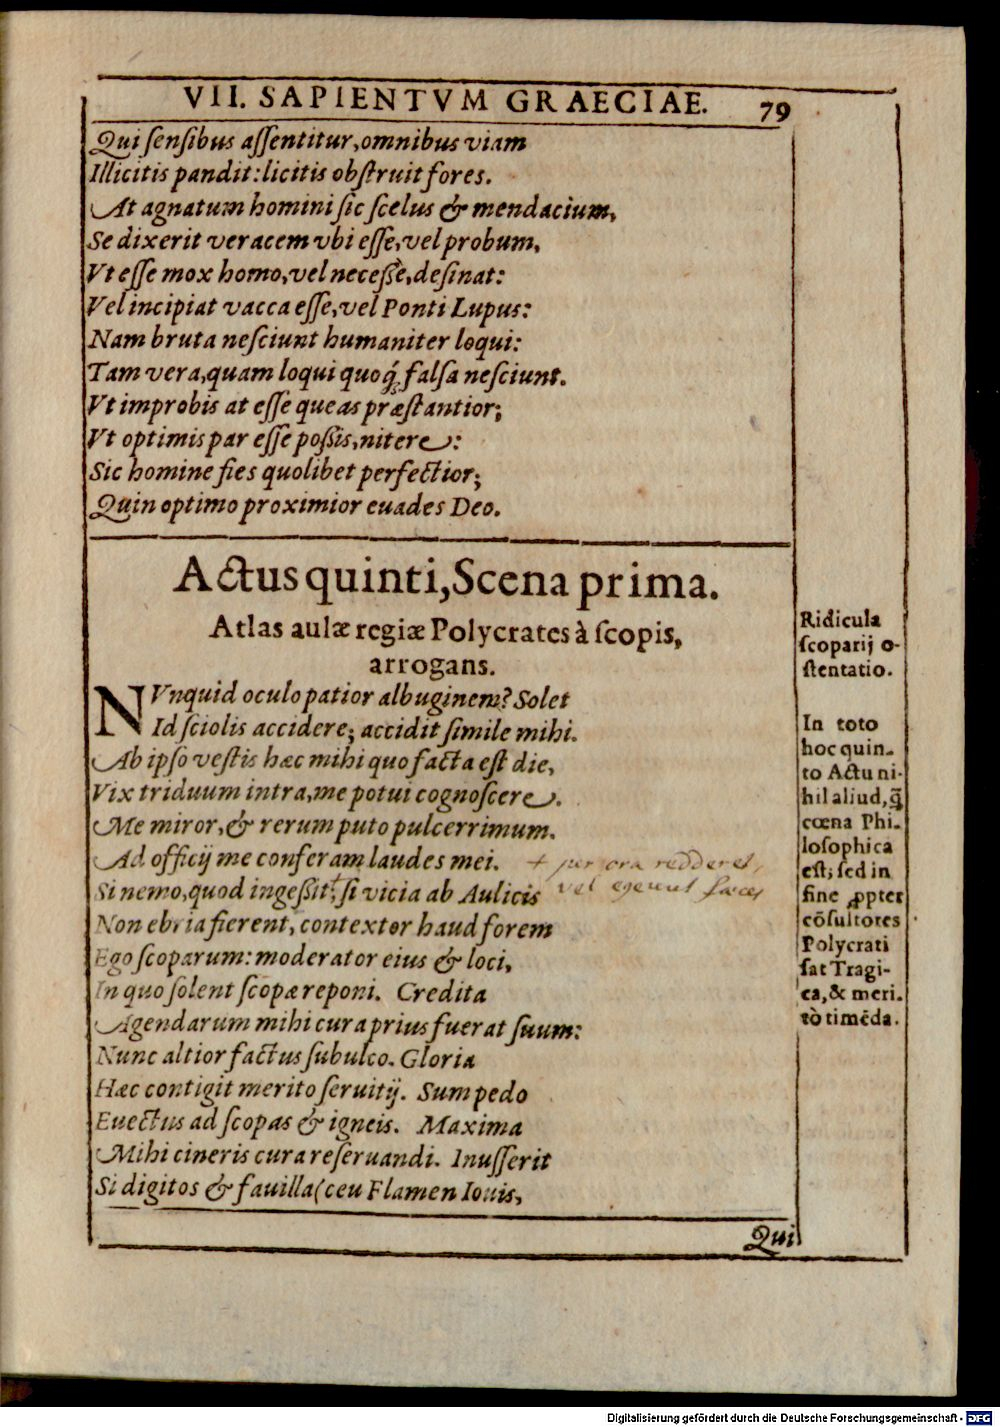 VII. SAPIENTVM GRAECIAE. 79
Qui sensibus assentitur, omnibus viam
Illicitis pandit: licitis obstruit fores.
At agnatum homini sic scelus & mendacium,
Se dixerit veracem vbi esse, vel probum,
Vt esse mox homo, vel necesse, desinat:
Vel incipiat vacca esse, vel Ponti Lupus:
Nam bruta nesciunt humaniter loqui:
Tam vera, quam loqui quoq́; falsa nesciunt.
Vt improbis at esse queas præstantior;
Vt optimis par esse possis, nitere:
Sic homine fies quolibet perfectior;
Quin optimo proximior euades Deo.
Actus quinti, Scena prima.
Atlas aulæ regiæ Polycrates à scopis,
arrogans.
NVnquid oculo patior albuginem? Solet
Id sciolis accidere; accidit simile mihi.
Ab ipso vestis hæc mihi quo facta est die,
Vix triduum intra, me potui cognoscere.
Me miror, & rerum puto pulcerrimum.
Ad officij me conferam laudes mei. + per ora redderet,
Si nemo, quod ingessit,† si vicia ab Aulicis vel egerunt fæces
Non ebria fierent, contextor haud forem
Ego scoparum: moderator eius & loci,
In quo solent scopæ reponi. Credita
Agendarum mihi cura prius fuerat suum:
Nunc altior factus subulco. Gloria
Hæc contigit merito seruitij. Sum pedo
Euectus ad scopas & igneis. Maxima
Mihi cineris cura reseruandi. Inusserit
Si digitos & fauilla (ceu Flamen Iouis,
Qui
Ridicula
scoparij o-
stentatio.
In toto
hoc quin-
to Actu ni-
hil aliud, q̃
cœna Phi-
losophica
est; sed in
fine ꝓpter
cõsultores
Polycrati
sat Tragi-
ca, & meri-
tò timẽda.
Digitalisierung gefördert durch die Deutsche Forschungsgemeinschaft - DFG